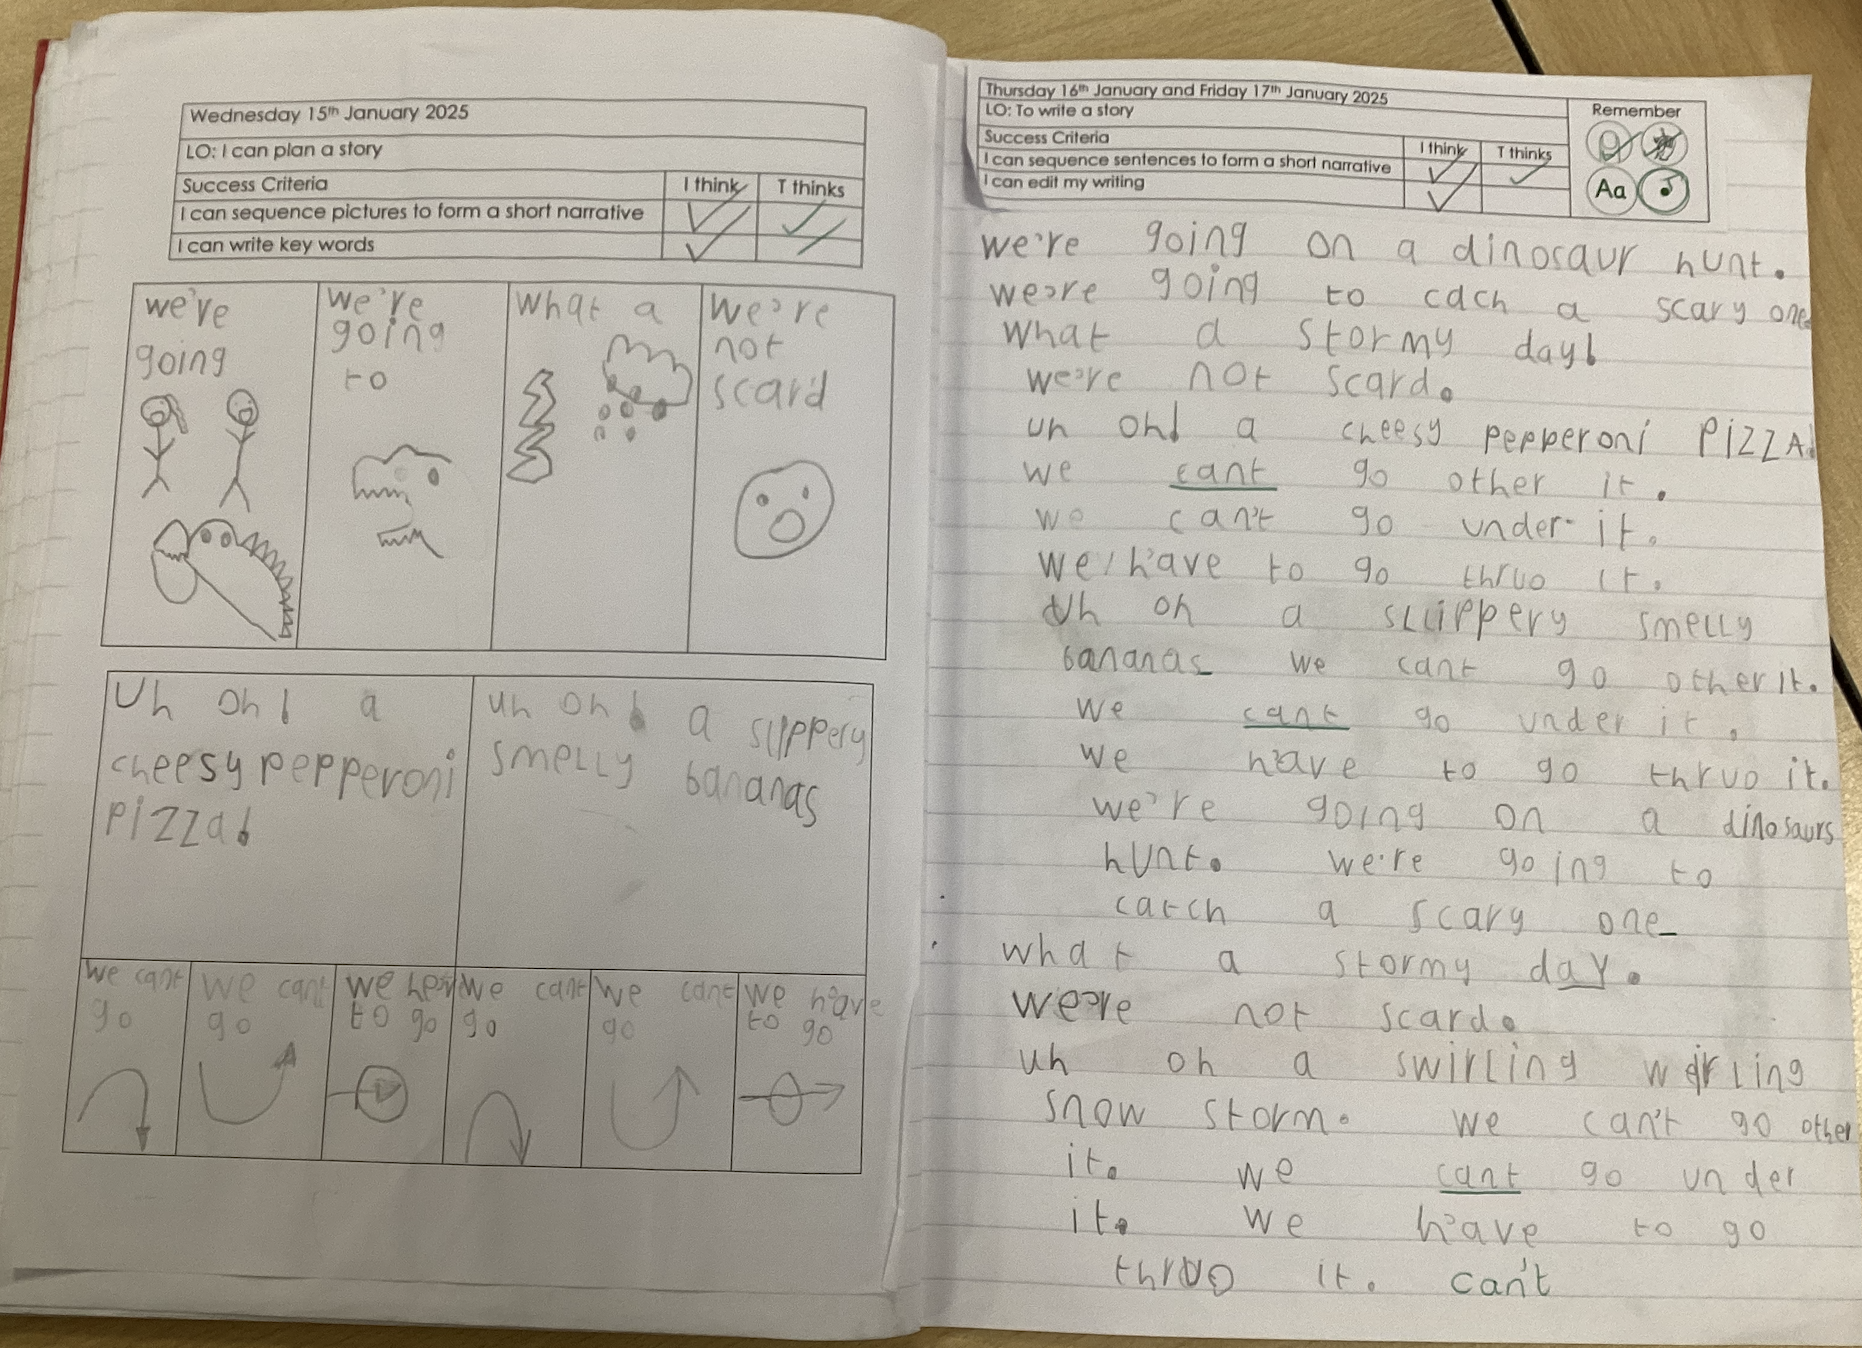 Wednesday 15th January 2025
LO: I can plan a story
Success Criteria
I think
T thinks
I can sequence pictures to form a short narrative
I can write key words
we're
going
we're
going
to
what a
we're
not
scard
Uh oh! a
cheesy pepperoni
pizza!
uh oh! a slippery
smelly bananas
we cant
go
we cant
go
we
to go
we cant
go
we cant
go
we h'ave
to go
Thursday 16th January and Friday 17th January 2025
LO: To write a story
Success Criteria
I think
T thinks
I can sequence sentences to form a short narrative
I can edit my writing
Remember
Aa
we're going on a dinosaur hunt.
we're going to cach a scary one
what a stormy day!
we're not scard.
uh oh! a cheesy pepperoni PIZZA
we cant go other it.
we can't go under it.
we h'ave to go thruo it.
uh oh a slippery smelly
bananas we cant go other it.
we cant go under it.
we h'ave to go thruo it.
we're going on a dinosaurs
hunt. we're going to
catch a scary one
what a stormy day.
we're not scard.
uh oh a swirling wirling
snow storm. we can't go other
it. we cant go under
it. we h'ave to go
thruo it. can't